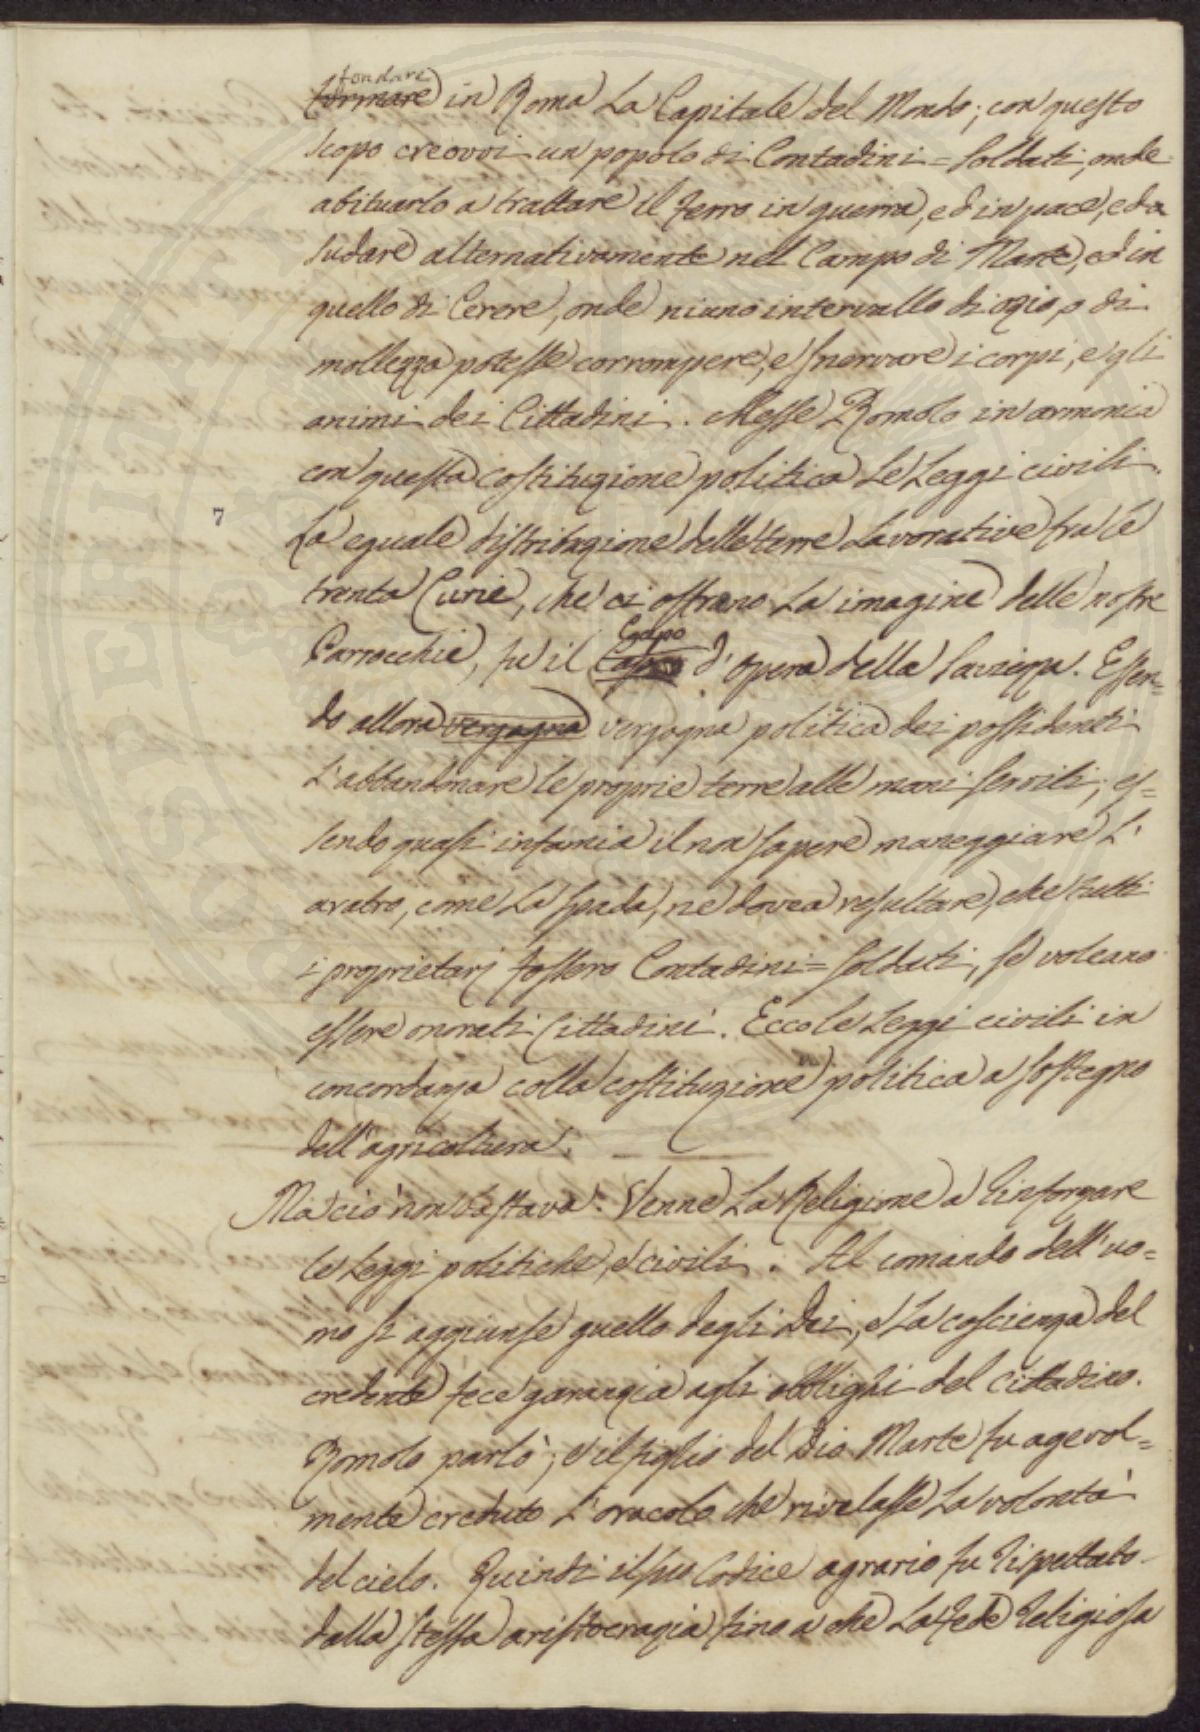 fondare
formare in Roma La Capitale del Mondo; con questo
scopo creovvi un popolo di Contadini = Soldati, onde
abituarlo a trattare il ferro in guerra, ed in pace, ed a
sudare alternativamente nel Campo di Marte, ed in
quello di Cerere, onde niuno intervallo di ozio, o di
mollezza potesse corrompere, e snervare i corpi, e gli
animi dei Cittadini. Messe Romolo in armonia
con questa costituzione politica Le Leggi civili.
7
La eguale distribuzione delle terre Lavorative fra le
trenta Curie, che ci offrano La imagine delle nostre
Capo
Parrocchie, fu il d'opera della Saviezza. Essen=
do allora vergogna vergogna politica dei possidenti
L'abbandonare le proprie terre alle mani servili; es=
sendo quasi infamia il non sapere maneggiare L'
aratro, come La spada, ne dovea resultare, che tutti
i proprietarj fossero Contadini = Soldati, se voleano
essere onorati Cittadini. Ecco le Leggi civili in
concordanza colla costituzione politica a sostegno
dell'agricoltura.
Ma ciò non bastava. Venne La Religione a rinforzare
le Leggi politiche, e civili. Al comando dell'uo=
mo si aggiunse quello degli Dei, e La coscienza del
credente fece garanzia agli obblighi del cittadino.
Romolo parlò; e il figlio del Dio Marte fu agevol=
mente creduto L'oracolo che rivelasse La volontà
del cielo. Quindi il suo Codice agrario fu rispettato
dalla stessa aristocrazia fino a che La fede religiosa